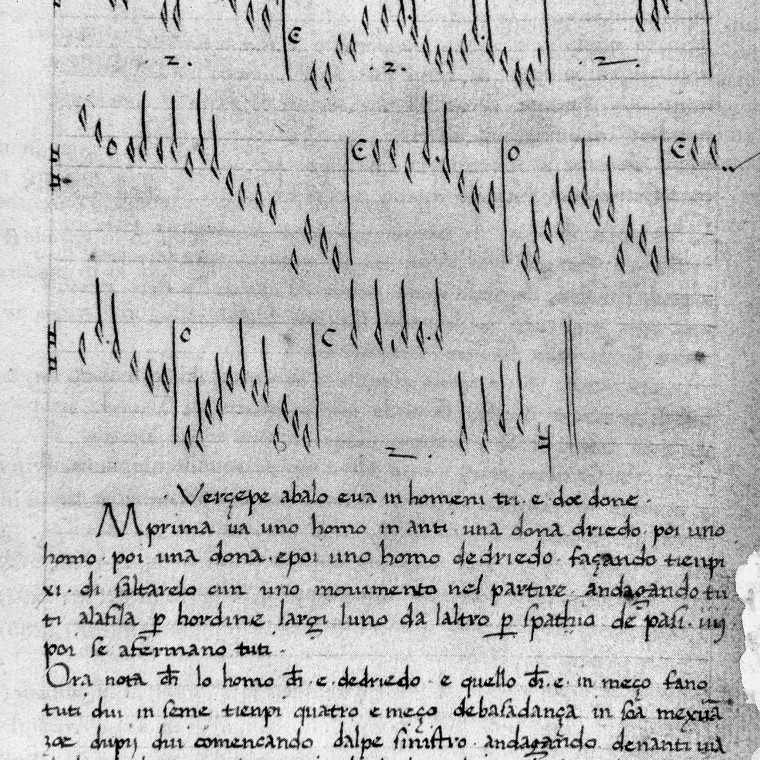 Verçepe abalo e va in homeni tri. e doe done.
M prima va uno homo in anti. una dona driedo. poi uno
homo. poi una dona. e poi uno homo dedriedo. façando tienpi
xi. di saltarelo cun uno movimento nel partire. andagando tu
ti alafila p hordine largi luno da laltro p spathio de pasi. iiij
poi se afermano tuti.
Ora nota ch lo homo ch. e. dedriedo. e quello ch. e. in meço fano
tuti dui in seme tienpi quatro e meço de basadança in soa mexura
zoe dupij dui comencando dalpe sinistro. andagando denanti via